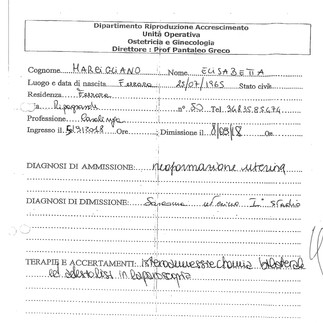 Dipartimento Riproduzione Accrescimento
Unità Operativa
Ostetricia e Ginecologia
Direttore : Prof Pantaleo Greco
Cognome MARZIGLIANO Nome ELISABETTA
Luogo e data di nascita Ferrara 25/07/1965 Stato civile
Residenza Ferrara
Via n° 50 Tel.
Professione Casalinga
Ingresso il 5/9/2018 Ore Dimissione il 8/09/18 Ore
DIAGNOSI DI AMMISSIONE: neoformazione uterina
DIAGNOSI DI DIMISSIONE: Sarcoma uterino I° stadio
TERAPIE E ACCERTAMENTI: isteroannessiectomia bilaterale
ed adesiolisi in laparoscopia